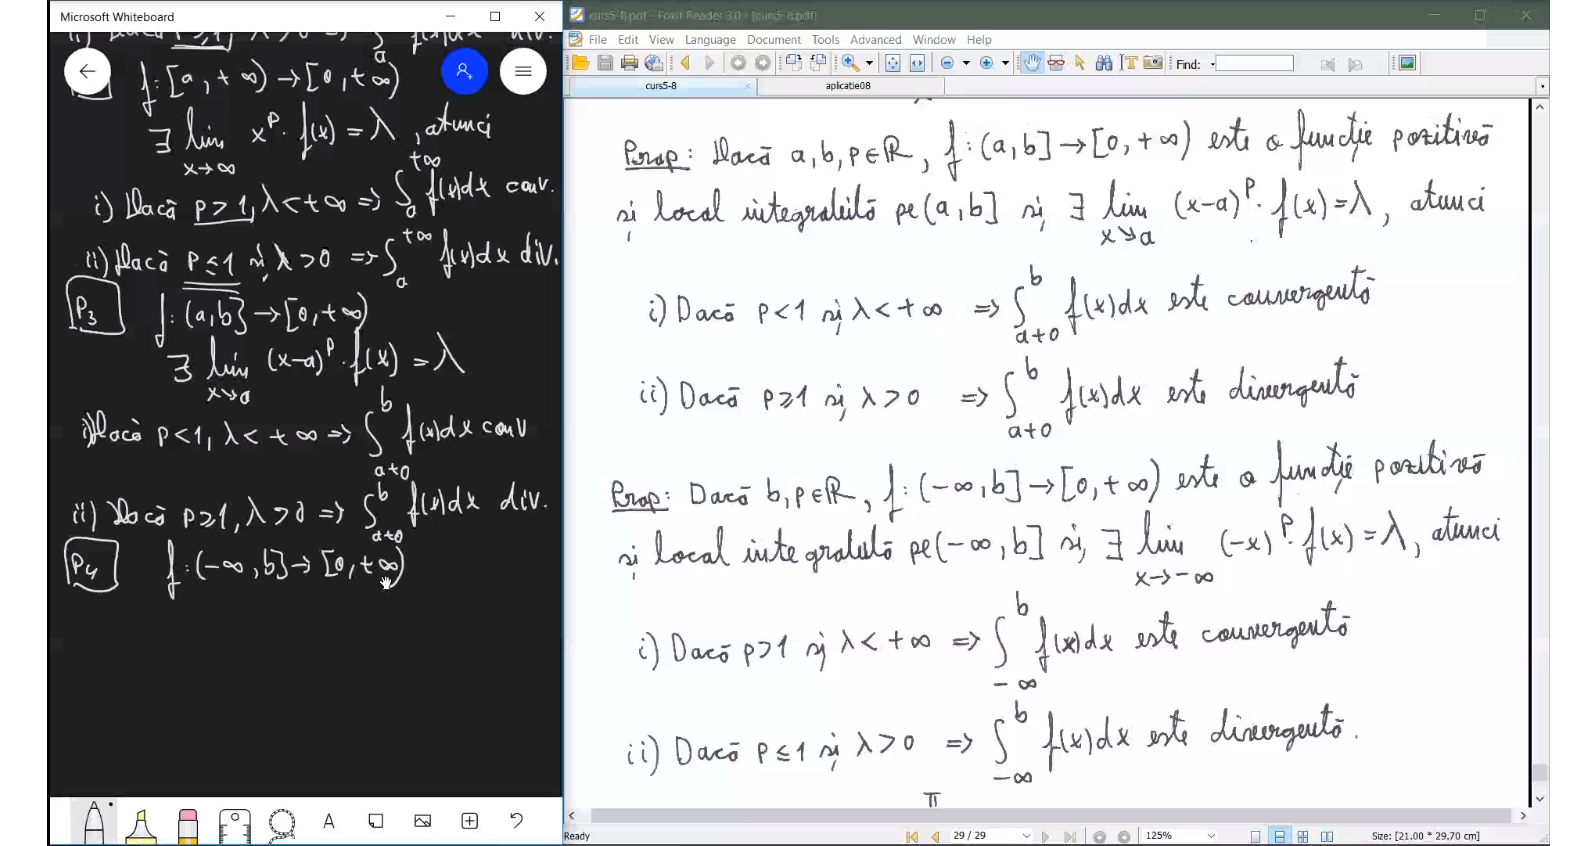 Microsoft Whiteboard
ii) Dacă p≥1, λ>0 ⇒ ∫ₐ f(x)dx div.
f: [a, +∞) → [0, +∞)
∃ lim x→∞ x^p · f(x) = λ, atunci
i) Dacă p>1, λ<+∞ ⇒ ∫ₐ^{+∞} f(x)dx conv.
ii) Dacă p≤1 și λ>0 ⇒ ∫ₐ^{+∞} f(x)dx div.
P₃ f: (a,b] → [0,+∞)
∃ lim x↘a (x-a)^p · f(x) = λ
i) Dacă p<1, λ<+∞ ⇒ ∫_{a+0}^b f(x)dx conv
ii) Dacă p≥1, λ>0 ⇒ ∫_{a+0}^b f(x)dx div.
P₄ f: (-∞, b] → [0, +∞)
A
curs5-8.pdf - Foxit Reader 3.0 - [curs5-8.pdf]
File Edit View Language Document Tools Advanced Window Help
Find:
curs5-8 aplicatie08
Prop: Dacă a, b, p∈ℝ, f: (a,b] → [0,+∞) este o funcție pozitivă
și local integrabilă pe (a,b] și ∃ lim x↘a (x-a)^p · f(x) = λ, atunci
i) Dacă p<1 și λ<+∞ ⇒ ∫_{a+0}^b f(x)dx este convergentă
ii) Dacă p≥1 și λ>0 ⇒ ∫_{a+0}^b f(x)dx este divergentă
Prop: Dacă b, p∈ℝ, f: (-∞, b] → [0,+∞) este o funcție pozitivă
și local integrabilă pe (-∞, b] și ∃ lim x→-∞ (-x)^p · f(x) = λ, atunci
i) Dacă p>1 și λ<+∞ ⇒ ∫_{-∞}^b f(x)dx este convergentă
ii) Dacă p≤1 și λ>0 ⇒ ∫_{-∞}^b f(x)dx este divergentă.
π
Ready 29 / 29 125% Size: [21.00 * 29.70 cm]